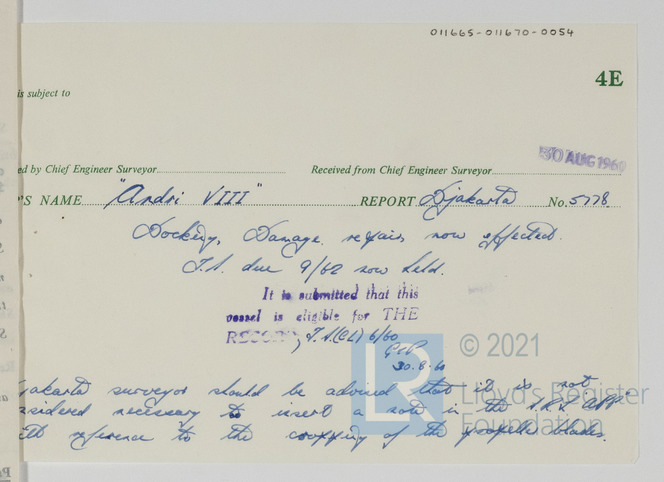 011665-011670-0054
4E
is subject to
30 AUG 1960
ed by Chief Engineer Surveyor Received from Chief Engineer Surveyor
'S NAME "Andri VIII" REPORT Djakarta No. 5778.
Docking, Damage repairs now effected.
T.S. due 9/62 now held.
It is submitted that this
vessel is eligible for THE
RECORD, T.S.(CL) 6/60
30.8.60
© 2021
LR
Lloyd's Register
Foundation
jakarta surveyor should be advised that it is not
nsidered necessary to insert a note in the
ith reference to the cropping of the propeller blades.